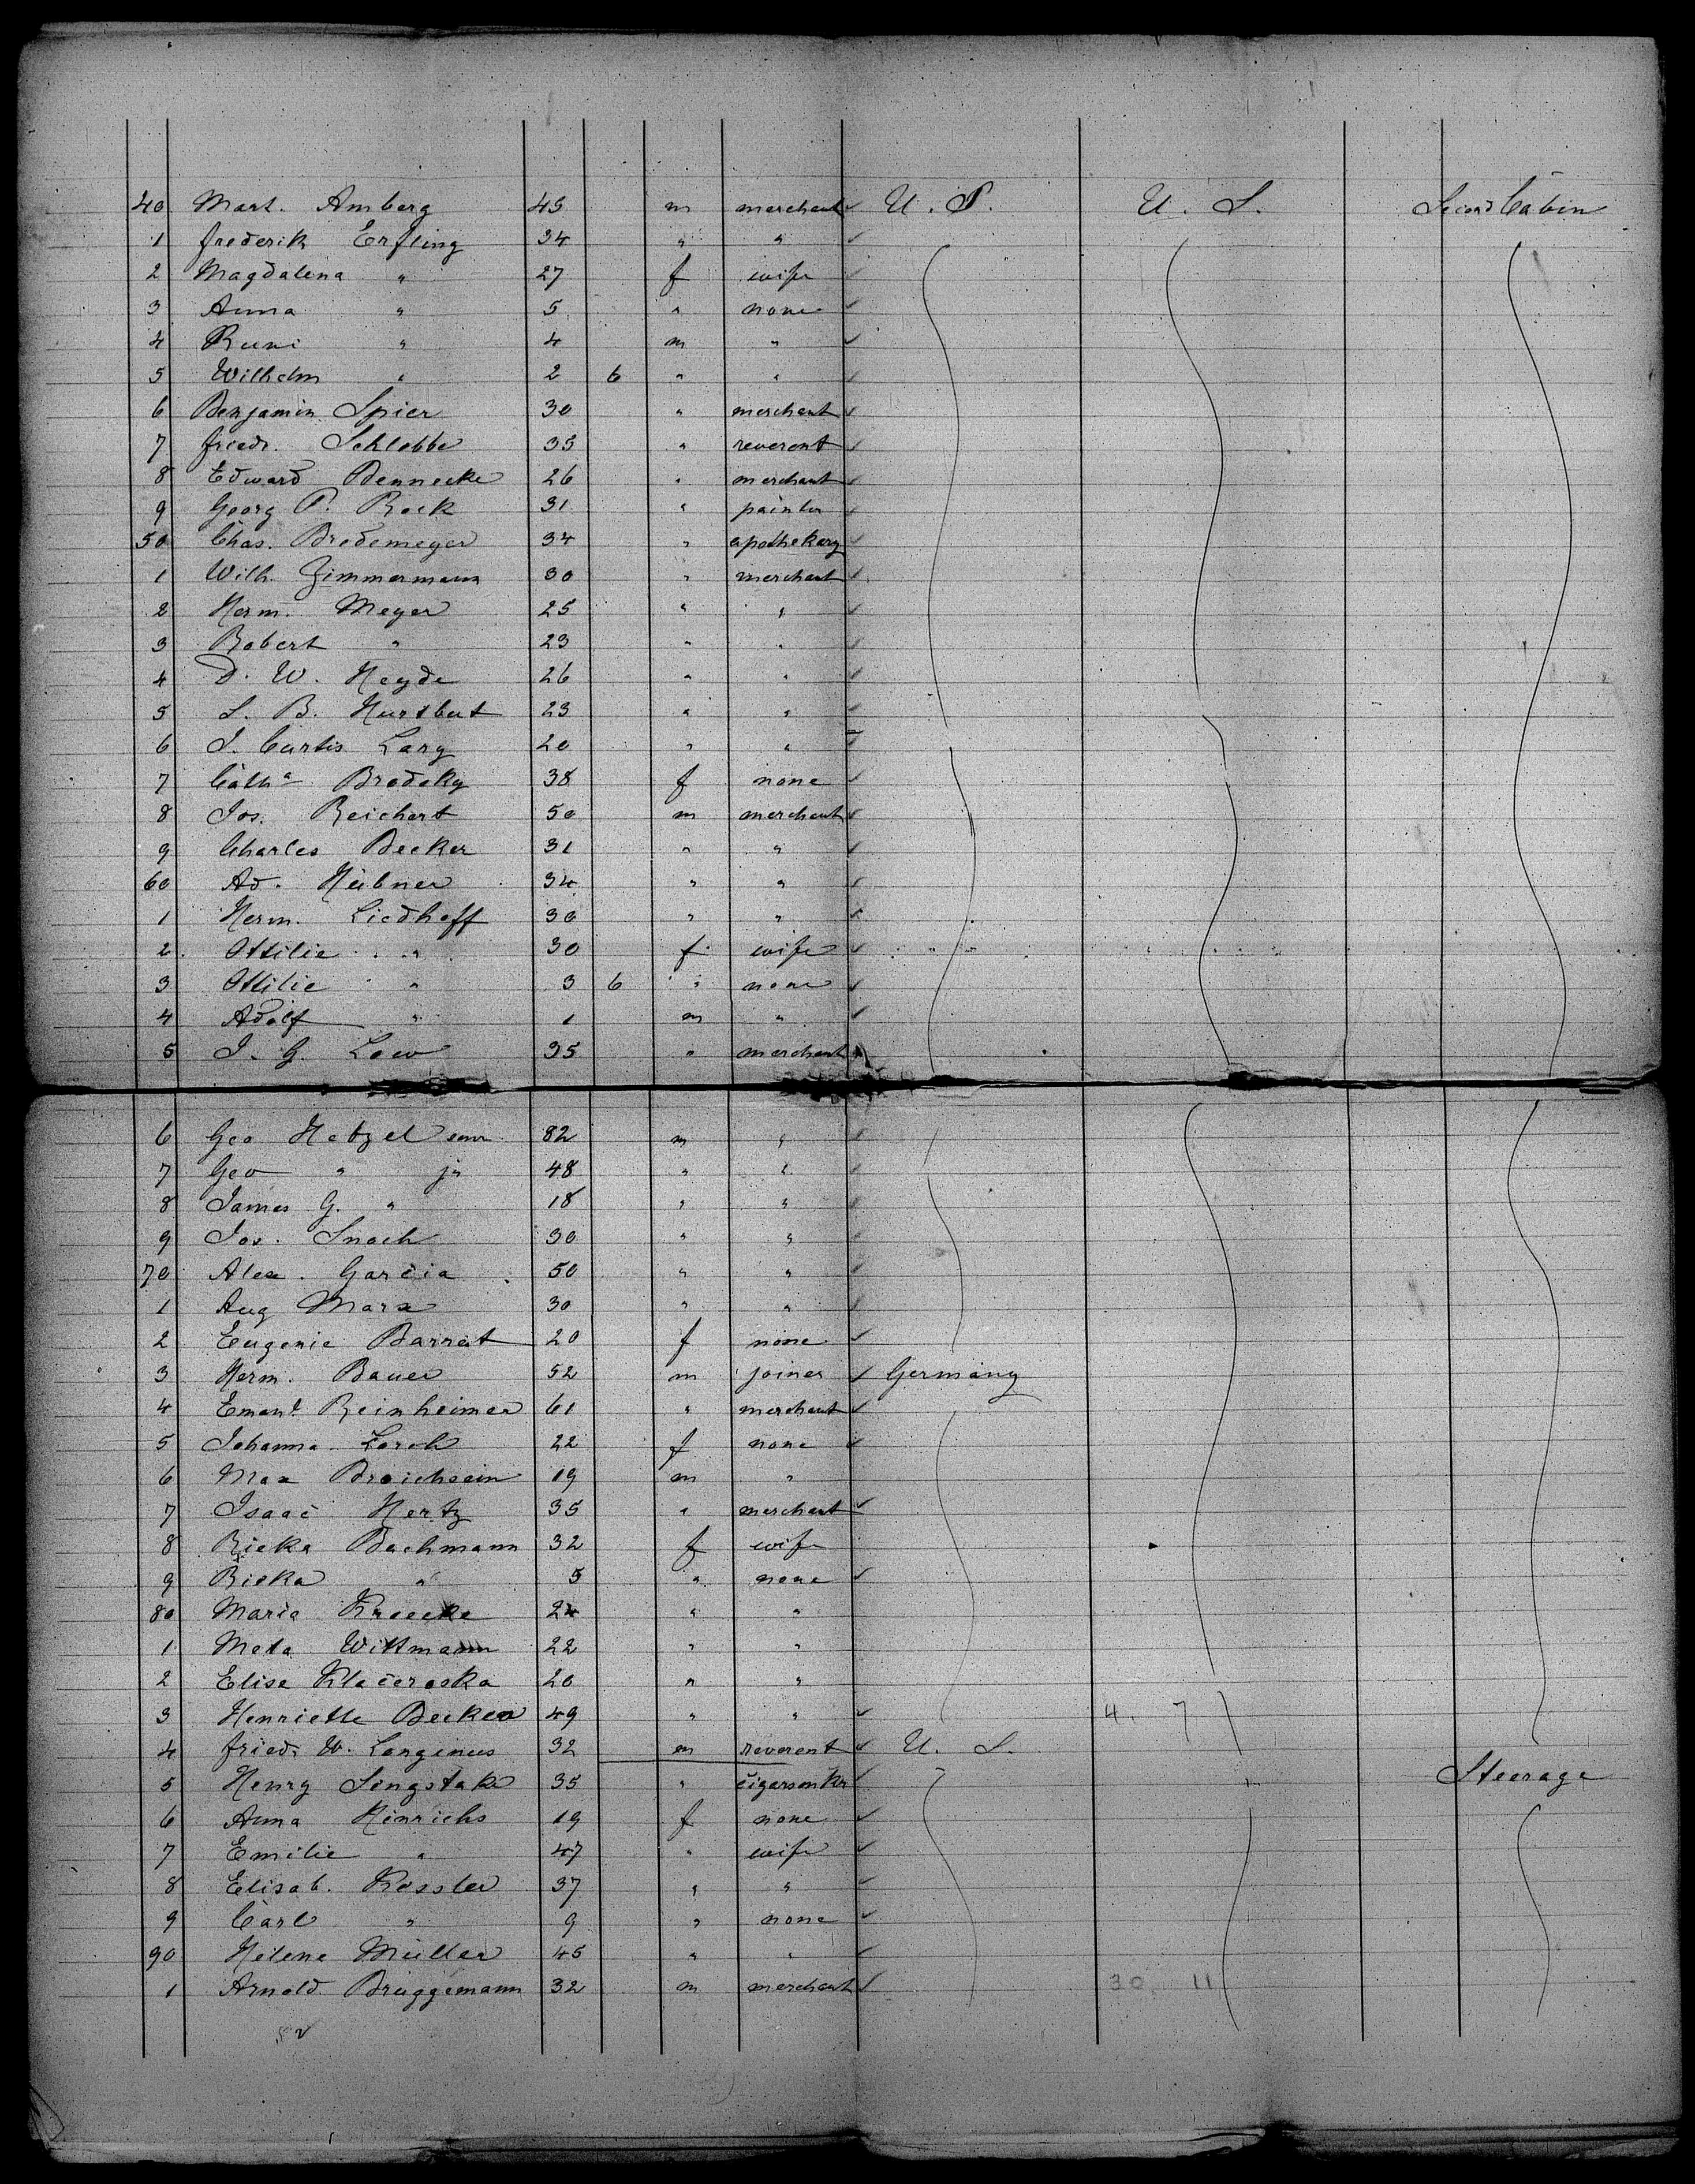 40 Mart. Amberg 45 m merchant U. S. U. S. Second Cabin
1 Frederik Erfling 34 " "
2 Magdalena " 27 f wife
3 Anna " 5 " none
4 " 4 m "
5 Wilhelm " 2 6 " "
6 Benjamin Spier 30 " merchant
7 Friedr. Schlobbe 35 " reverent
8 Edward Dennecke 26 " merchant
9 Georg P. Rock 31 " painter
50 Chas. Bredemeyer 34 " apothekary
1 Wilh. Zimmermann 30 " merchant
2 Herm. Meyer 25 " "
3 Robert " 23 " "
4 D. W. Heyde 26 " "
5 S. B. Hurlbut 23 " "
6 J. Curtis Lary 20 " "
7 Cath^a Brodeky 38 f none
8 Jos. Reichert 50 m merchant
9 Charles Becker 31 " "
60 Ad. Hübner 34 " "
1 Herm. Liedhoff 30 " "
2 Ottilie " 30 f wife
3 Ottilie " 3 6 " none
4 Adolf " 1 m "
5 J. G. Loew 35 " merchant
6 Geo Hetzel senr 82 m "
7 Geo " jr 48 " "
8 James G. " 18 " "
9 Jos. Snoch 30 " "
70 Alex. Garcia 50 " "
1 Aug Marx 30 " "
2 Eugenie Barrat 20 f none
3 Herm. Bauer 52 m joiner Germany
4 Emanl Reinheimer 61 " merchant
5 Johanna Lorch 22 f none
6 Max Broichsein 19 m "
7 Isaac Hertz 35 " merchant
8 Rieka Bachmann 32 f wife
9 Rieka " 5 " none
80 Maria 24 " "
1 Meta Wittmann 22 " "
2 Elise Klaceroska 20 " "
3 Henriette Becker 49 " " 4. 7
4 Friedr W. Longinus 32 m reverent U. S.
5 Henry Sengstake 35 " cigarsmkr Steerage
6 Anna Hinrichs 19 f none
7 Emilie " 47 " wife
8 Elisab. Kessler 37 " "
9 Carl " 9 " none
90 Helene Müller 45 " "
1 Arnold Brüggemann 32 m merchant 30 11